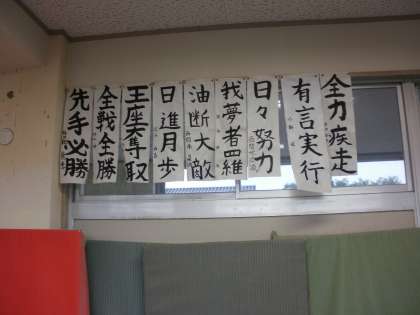 全力疾走
有言実行
日々努力
我夢者羅
油断大敵
日進月歩
王座奪取
全戦全勝
先手必勝